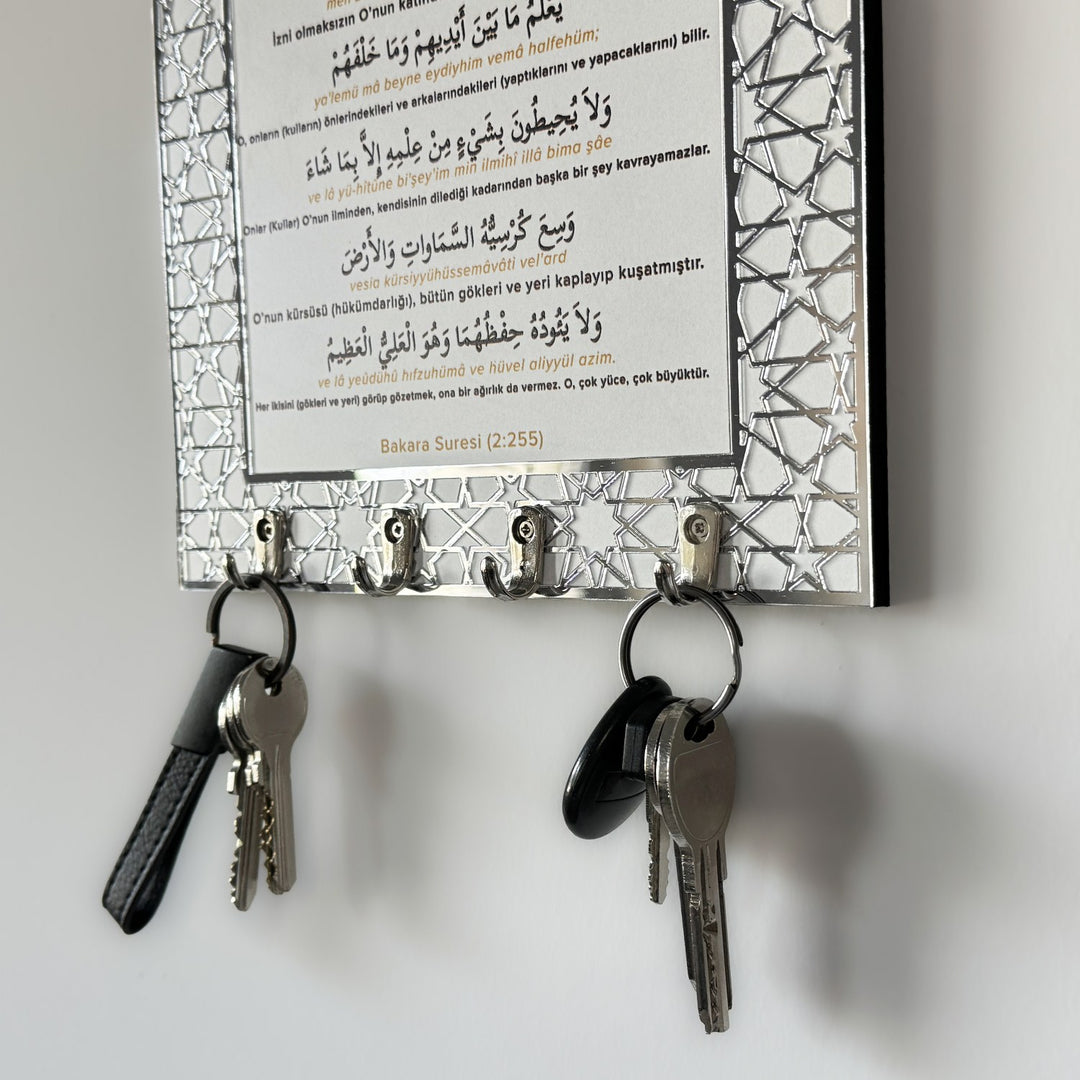 İzni olmaksızın O'nun
يَعْلَمُ مَا بَيْنَ أَيْدِيهِمْ وَمَا خَلْفَهُمْ
ya'lemü mâ beyne eydiyhim vemâ halfehüm;
O, onların (kulların) önlerindekileri ve arkalarındakileri (yaptıklarını ve yapacaklarını) bilir.
وَلاَ يُحِيطُونَ بِشَيْءٍ مِنْ عِلْمِهِ إِلاَّ بِمَا شَاءَ
ve lâ yü-hîtûne bi'şey'im min ilmihî illâ bima şâe
Onlar (Kullar) O'nun ilminden, kendisinin dilediği kadarından başka bir şey kavrayamazlar.
وَسِعَ كُرْسِيُّهُ السَّمَاوَاتِ وَالأَرْضَ
vesia kürsiyyühüssemâvâti vel'ard
O'nun kürsüsü (hükümdarlığı), bütün gökleri ve yeri kaplayıp kuşatmıştır.
وَلاَ يَئُودُهُ حِفْظُهُمَا وَهُوَ الْعَلِيُّ الْعَظِيمُ
ve lâ yeûdühû hıfzuhümâ ve hüvel aliyyül azim.
Her ikisini (gökleri ve yeri) görüp gözetmek, ona bir ağırlık da vermez. O, çok yüce, çok büyüktür.
Bakara Suresi (2:255)